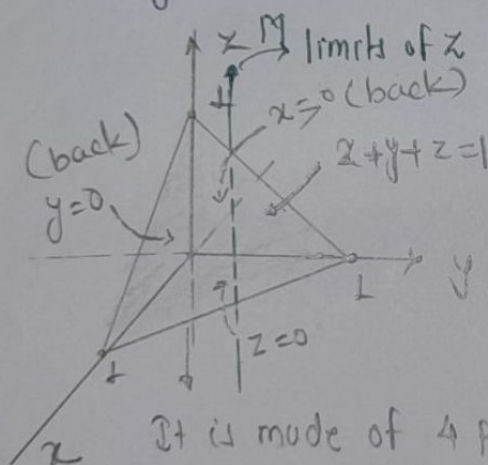 z M limits of z
x=0 (back)
(back)
x+y+z=1
y=0
1
y
z=0
1
x
It is made of 4